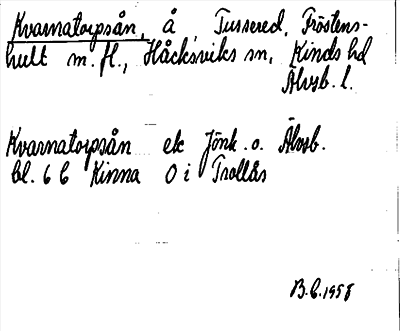 Kvarnatorpsån, å, Tussered, Fröstens-
hult m.fl., Håcksviks sn, Kinds hd
Älvsb. l.
Kvarnatorpsån ek Jönk. o. Älvsb.
bl. 6 b Kinna O i Trollås
B.C. 1958